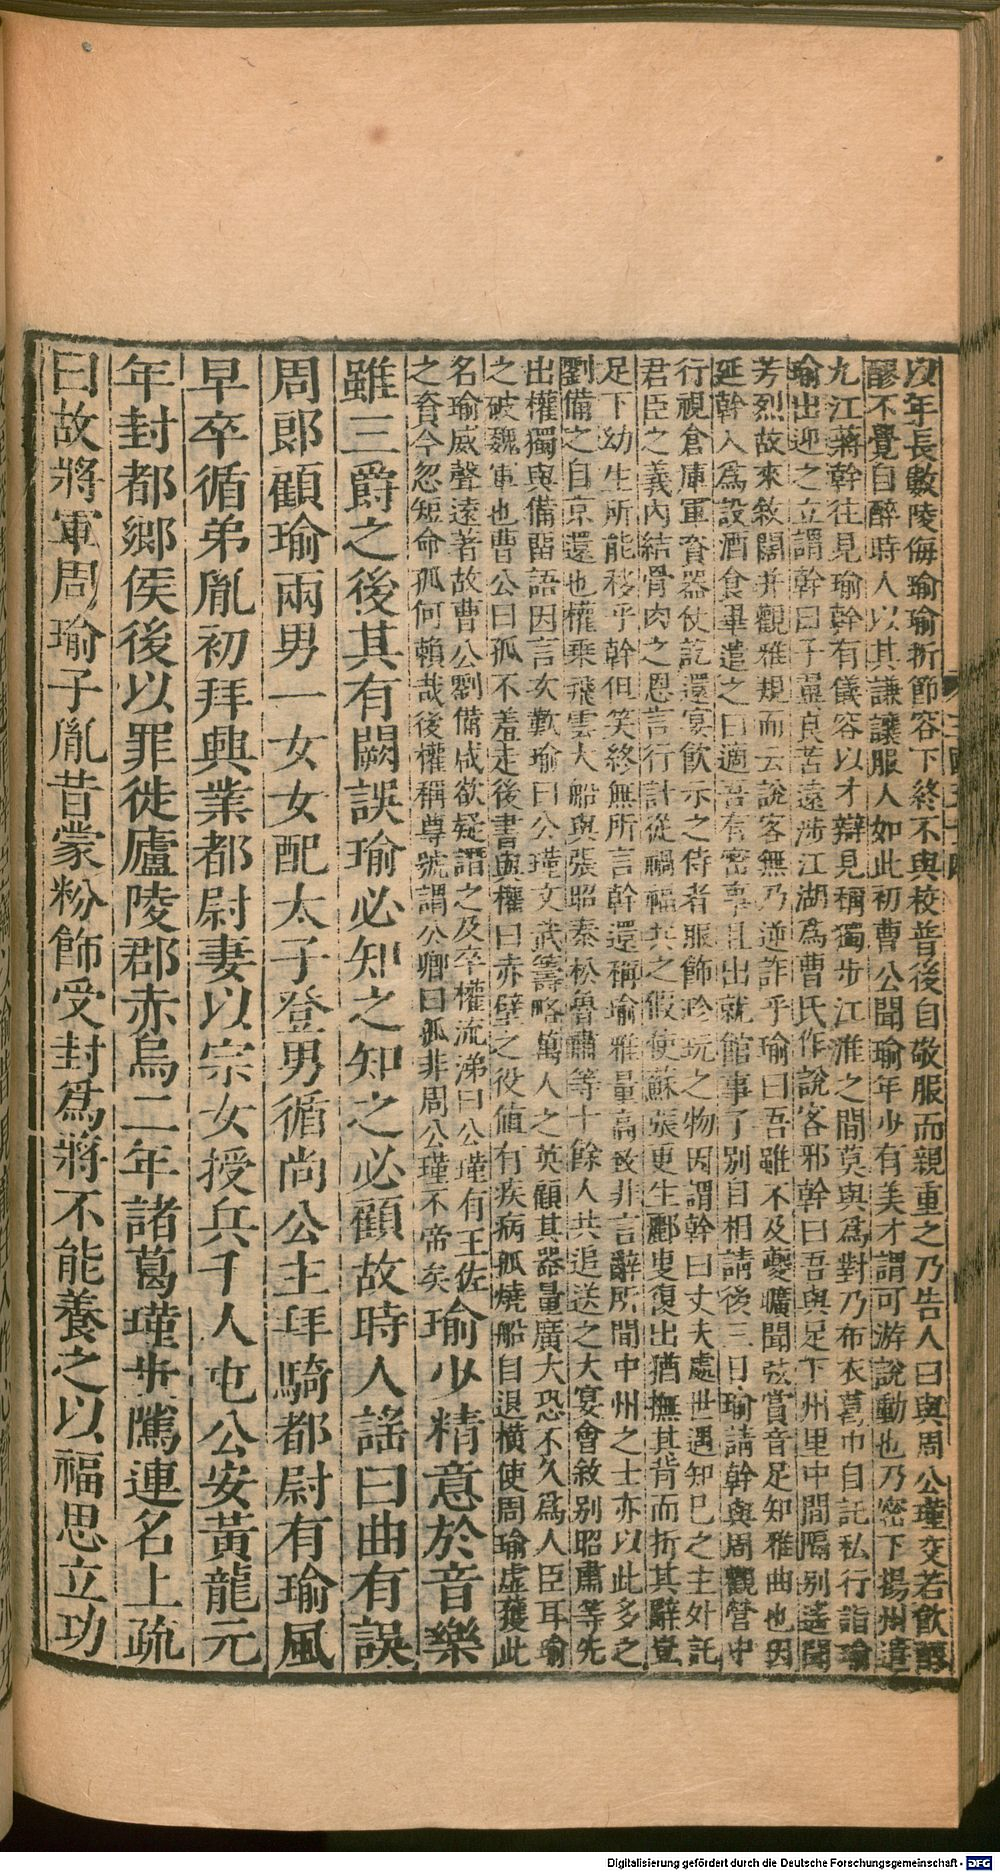 以年長數陵侮瑜瑜折節容下終不與校普後自敬服而親重之乃告人曰與周公瑾交若飲醇
醪不覺自醉時人以其謙讓服人如此初曹公聞瑜年少有美才謂可游說動也乃密下揚州遣
九江蔣幹往見瑜幹有儀容以才辯見稱獨步江淮之間莫與爲對乃布衣葛巾自託私行詣瑜
瑜出迎之立謂幹曰子翼良苦遠涉江湖爲曹氏作說客邪幹曰吾與足下州里中間隔別遙聞
芳烈故來敘闊并觀雅規而云說客無乃逆詐乎瑜曰吾雖不及夔曠聞弦賞音足知雅曲也因
延幹入爲設酒食畢遣之曰適吾有密事且出就館事了別自相請後三日瑜請幹與周觀營中
行視倉庫軍資器仗訖還宴飲示之侍者服飾珍玩之物因謂幹曰丈夫處世遇知己之主外託
君臣之義內結骨肉之恩言行計從禍福共之假使蘇張更生酈叟復出猶撫其背而折其辭豈
足下幼生所能移乎幹但笑終無所言幹還稱瑜雅量高致非言辭所間中州之士亦以此多之
劉備之自京還也權乘飛雲大船與張昭秦松魯肅等十餘人共追送之大宴會敘別昭肅等先
出權獨與備留語因言次歎瑜曰公瑾文武籌略萬人之英顧其器量廣大恐不久爲人臣耳瑜
之破魏軍也曹公曰孤不羞走後書與權曰赤壁之役值有疾病孤燒船自退橫使周瑜虛獲此
名瑜威聲遠著故曹公劉備咸欲疑譖之及卒權流涕曰公瑾有王佐
之資今忽短命孤何賴哉後權稱尊號謂公卿曰孤非周公瑾不帝矣
瑜少精意於音樂
雖三爵之後其有闕誤瑜必知之知之必顧故時人謠曰曲有誤
周郎顧瑜兩男一女女配太子登男循尚公主拜騎都尉有瑜風
早卒循弟胤初拜興業都尉妻以宗女授兵千人屯公安黃龍元
年封都鄉侯後以罪徙廬陵郡赤烏二年諸葛瑾步騭連名上疏
曰故將軍周瑜子胤昔蒙粉飾受封爲將不能養之以福思立功
Digitalisierung gefördert durch die Deutsche Forschungsgemeinschaft - DFG